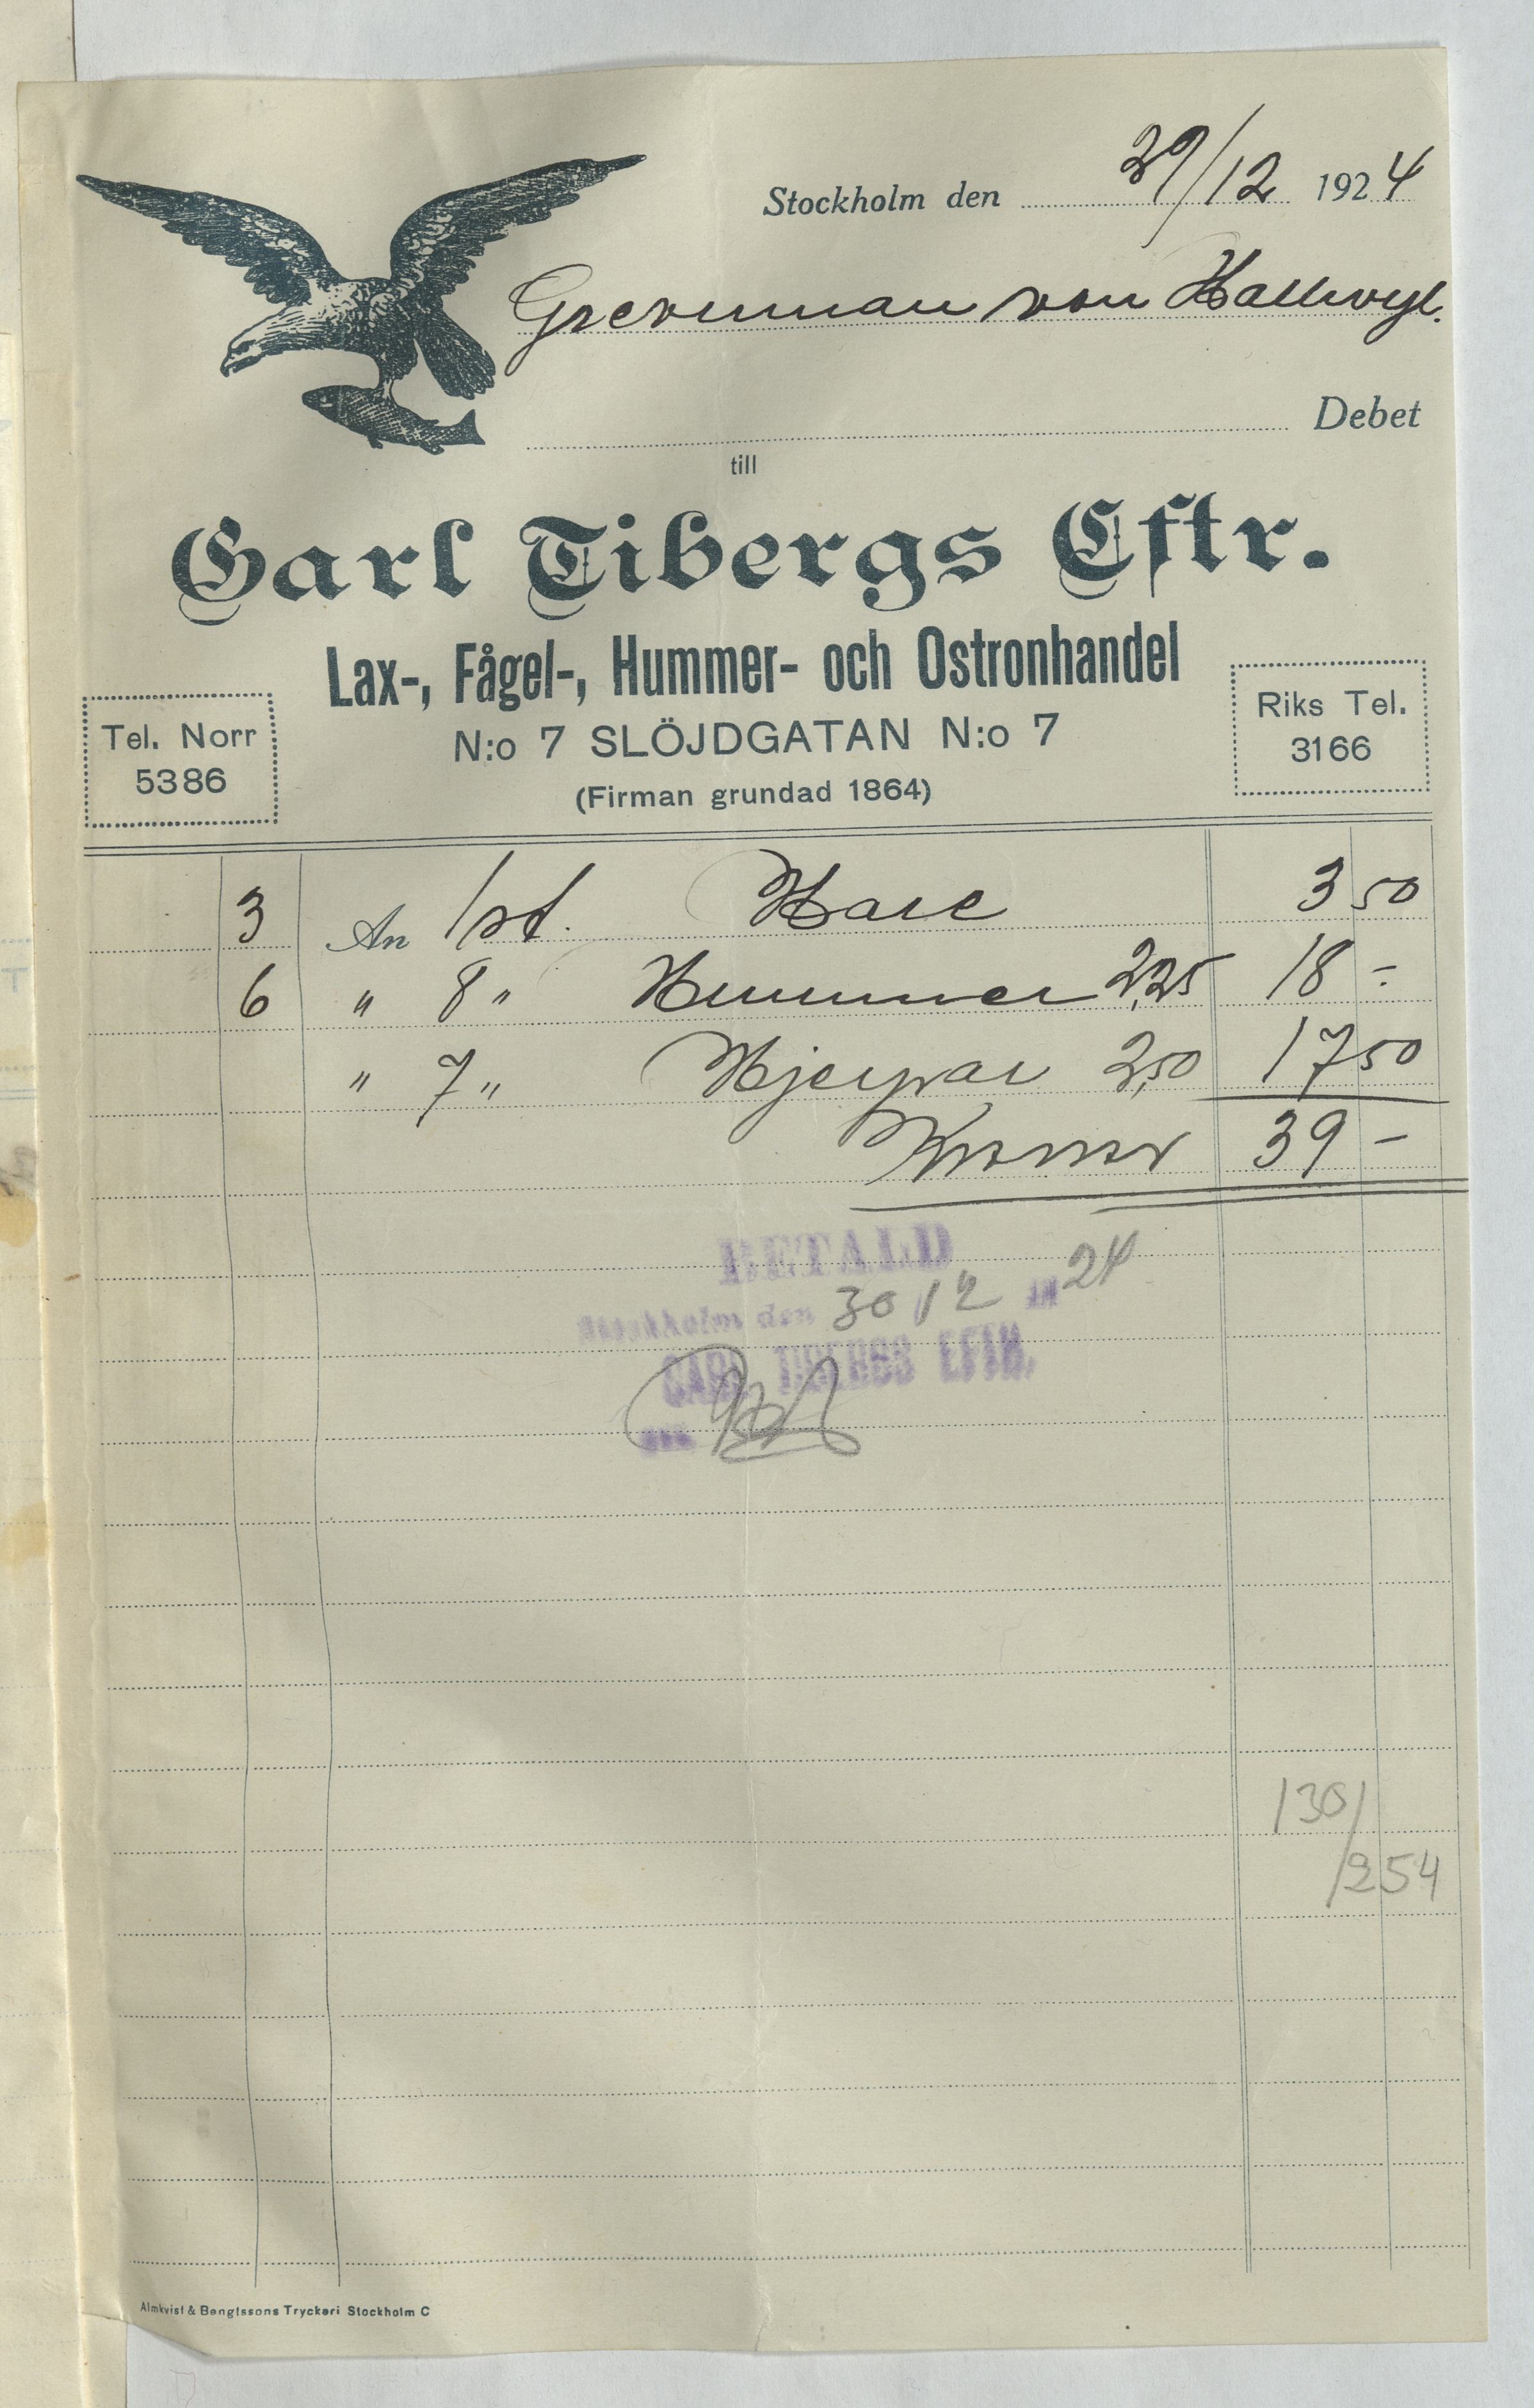 Stockholm den 29/12 1924
Grevinnan von Hallwyl.
Debet
till
Carl Tibergs Eftr.
Lax-, Fågel-, Hummer- och Ostronhandel
Tel. Norr
5386
N:o 7 SLÖJDGATAN N:o 7
(Firman grundad 1864)
Riks Tel.
3166
3 An 1 st. Hare 3 50
6 " 8 " Hummer 2,25 18 -
" 7 " Hjerpar 2,50 17 50
Kronor 39 -
BETALD
Stockholm den 30 12 19 24
CARL TIBERGS EFTR.
130/
/254
Almkvist & Bengtssons Tryckeri Stockholm C